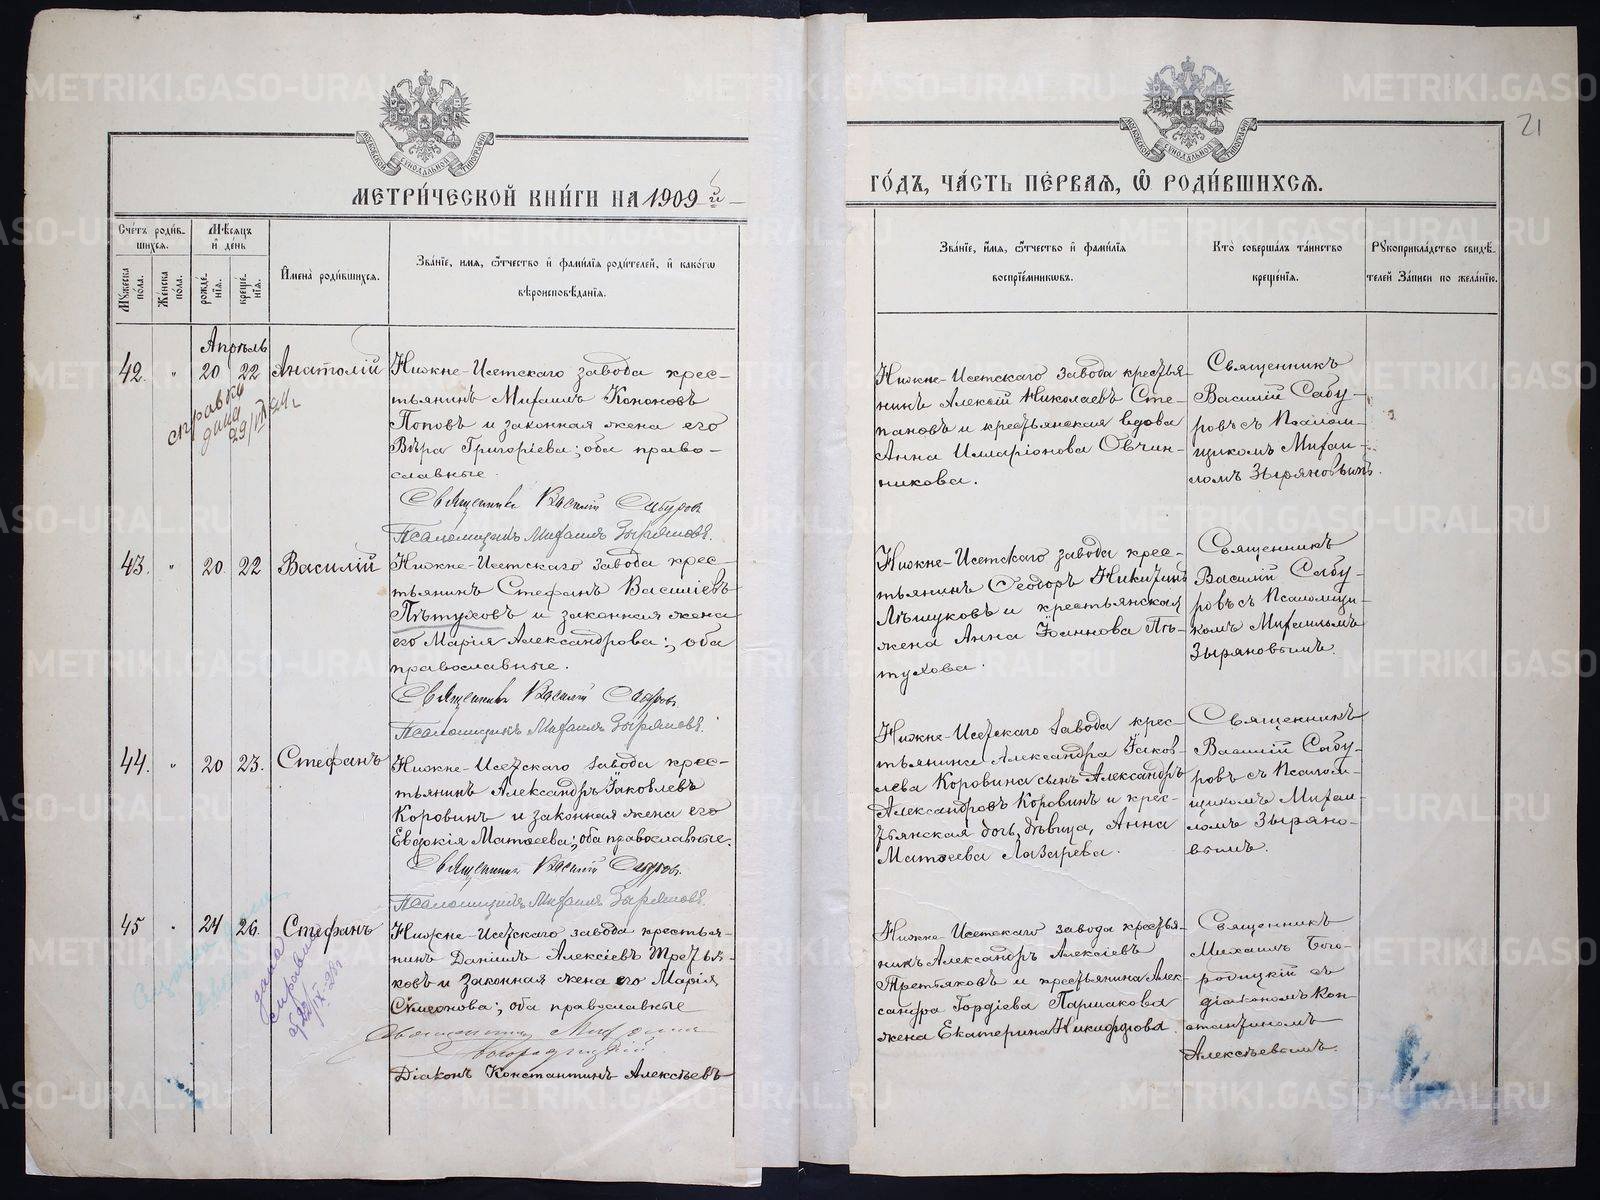 МЕТРИ́ЧЕСКОЙ КНИ́ГИ НА 1909 й
ГО́ДЪ, ЧА́СТЬ ПЕ́РВАЯ, Ѡ РОДИ́ВШИХСЯ.
21
МОСКОВСКОЙ СѴНОДАЛЬНОЙ ТИПОГРАФІИ
Сче́тъ роди́в-
шихся.
Мѣ́сяцъ
и де́нь
Мꙋжеска по́ла.
Же́нска по́ла.
рожде́нїя.
креще́нїя.
Имена̀ роди́вшихся.
Зва́нїе, и́мя, ѻ́тчество и фами́лїя роди́телей, и како́гѡ
вѣроисповѣ́данїя.
Зва́нїе, и́мя, ѻ́тчество и фами́лїя
воспрїе́мниковъ.
Кто̀ соверша́лъ та́инство
креще́нїя.
Рꙋкоприкла́дство свидѣ́-
телей за́писи по жела́нїю.
Апрѣль
42. " 20 22 Анатолій
справка
дана
29/IX 24 г
Нижне-Исетскаго завода крес-
тьянинъ Михаилъ Кононовъ
Поповъ и законная жена его
Вѣра Григоріева; оба право-
славные.
Священникъ Василій Сабуровъ
Псаломщикъ Михаилъ Зыряновъ.
Нижне-Исетскаго завода крестья-
нинъ Алексій Николаевъ Сте-
пановъ и крестьянская вдова
Анна Илларіонова Овчин-
никова.
Священникъ
Василій Сабу-
ровъ съ Псалом-
щикомъ Михаи-
ломъ Зыряновымъ.
43. " 20. 22 Василій
Нижне-Исетскаго завода крес-
тьянинъ Стефанъ Василіевъ
Пѣтуховъ и законная жена
его Марія Александрова; оба
православные.
Священникъ Василій Сабуровъ
Псаломщикъ Михаилъ Зыряновъ.
Нижне-Исетскаго завода крес-
тьянинъ Ѳеодоръ Никитинъ
Лѣшуковъ и крестьянская
жена Анна Іоаннова Пѣ-
тухова.
Священникъ
Василій Сабу-
ровъ съ Псаломщи-
комъ Михаиломъ
Зыряновымъ.
44. " 20 23. Стефанъ
Нижне-Исетскаго завода крес-
тьянинъ Александръ Іаковлевъ
Коровинъ и законная жена его
Евдокія Матѳеева; оба православные.
Священникъ Василій Сабуровъ
Псаломщикъ Михаилъ Зыряновъ.
Нижне-Исетскаго завода крес-
тьянина Александра Іаков-
лева Коровина сынъ Александръ
Александровъ Коровинъ и крес-
тьянская дочь, дѣвица, Анна
Матѳеева Лазарева.
Священникъ
Василій Сабу-
ровъ съ Псалом-
щикомъ Михаи-
ломъ Зыряно-
вымъ.
45 " 24 26. Стефанъ
дана
справка
22/IX-24 г
Нижне-Исетскаго завода крестья-
нинъ Даніилъ Алексіевъ Третья-
ковъ и законная жена его Марія
Сѵмеонова; оба православные
Священникъ Михаилъ
Богородицкій.
Діаконъ Константинъ Алексѣевъ
Нижне-Исетскаго завода крестья-
нинъ Александръ Алексіевъ
Третьяковъ и крестьянина Алек-
сандра Гордіева Паршакова
жена Екатерина Никифорова.
Священникъ
Михаилъ Бого-
родицкій съ
діакономъ Кон-
стантиномъ
Алексѣевымъ.
METRIKI.GASO-URAL.RU